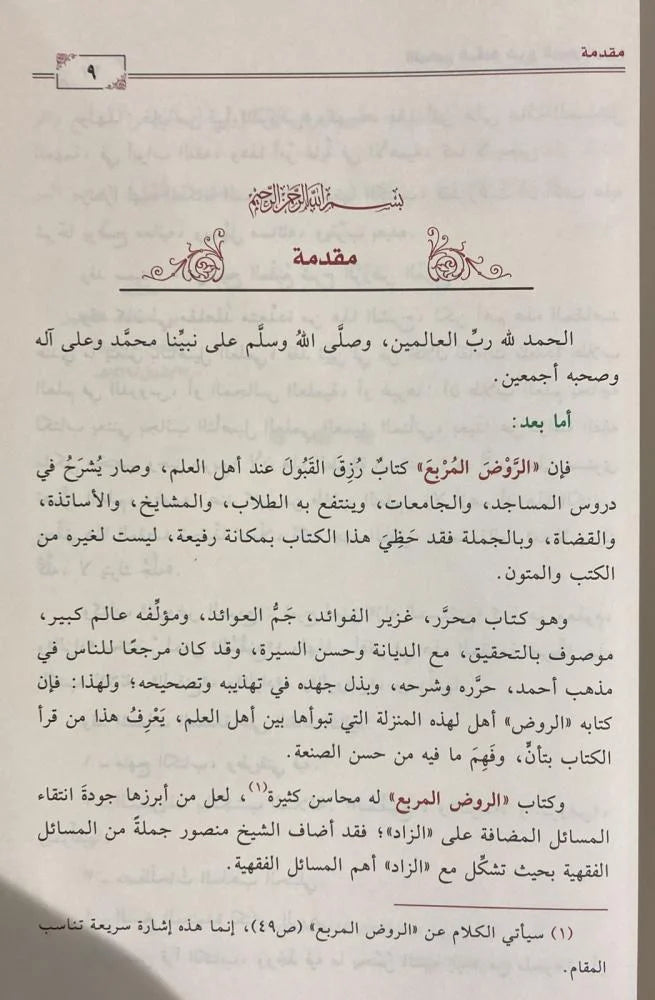 مقدمة
٩
بسم الله الرحمن الرحيم
مقدمة
الحمد لله ربِّ العالمين، وصلَّى اللهُ وسلَّم على نبيِّنا محمَّد وعلى آله
وصحبه أجمعين.
أما بعد:
فإن «الرَّوْضَ المُرْبِعَ» كتابٌ رُزِقَ القَبُولَ عند أهل العلم، وصار يُشرَحُ في
دروس المساجد، والجامعات، وينتفع به الطلاب، والمشايخ، والأساتذة،
والقضاة، وبالجملة فقد حَظِيَ هذا الكتاب بمكانة رفيعة، ليست لغيره من
الكتب والمتون.
وهو كتاب محرَّر، غزير الفوائد، جَمُّ العوائد، ومؤلِّفه عالم كبير،
موصوف بالتحقيق، مع الديانة وحسن السيرة، وقد كان مرجعًا للناس في
مذهب أحمد، حرَّره وشرحه، وبذل جهده في تهذيبه وتصحيحه؛ ولهذا: فإن
كتابه «الروض» أهل لهذه المنزلة التي تبوأها بين أهل العلم، يَعْرِفُ هذا من قرأ
الكتاب بتأنٍّ، وفَهِمَ ما فيه من حسن الصنعة.
وكتاب «الروض المربع» له محاسن كثيرة(١)، لعل من أبرزها جودةَ انتقاء
المسائل المضافة على «الزاد»؛ فقد أضاف الشيخ منصور جملةً من المسائل
الفقهية بحيث تشكِّل مع «الزاد» أهم المسائل الفقهية.
(١) سيأتي الكلام عن «الروض المربع» (ص٤٩)، إنما هذه إشارة سريعة تناسب
المقام.